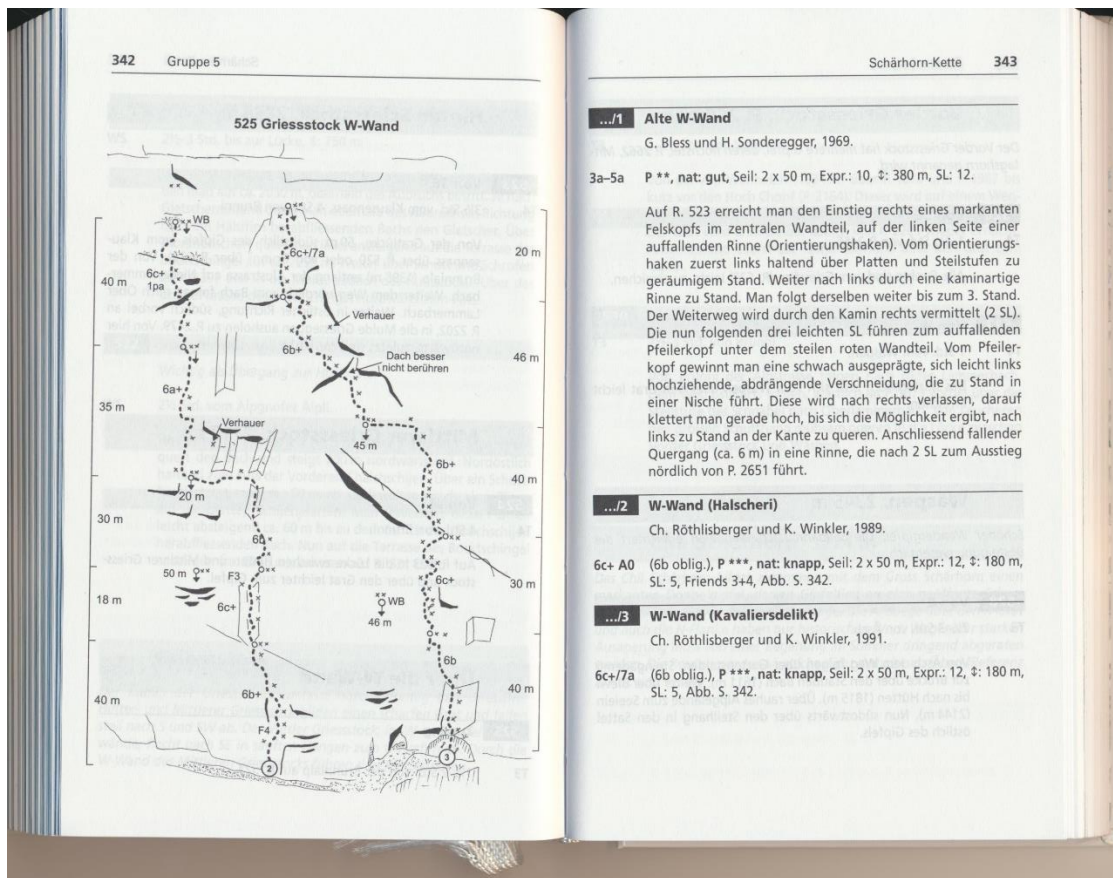 342 Gruppe 5
525 Griessstock W-Wand
WB
20 m
6c+/7a
6c+
1pa
40 m
Verhauer
6b+
46 m
Dach besser
nicht berühren
6a+
35 m
Verhauer
45 m
6b+
40 m
20 m
30 m
6b
50 m
F3
6c+
30 m
18 m
6c+
WB
46 m
6b
6b+
40 m
40 m
F4
2
3
Schärhorn-Kette 343
.../1 Alte W-Wand
G. Bless und H. Sonderegger, 1969.
3a–5a P **, nat: gut, Seil: 2 x 50 m, Expr.: 10, ⇕: 380 m, SL: 12.
Auf R. 523 erreicht man den Einstieg rechts eines markanten
Felskopfs im zentralen Wandteil, auf der linken Seite einer
auffallenden Rinne (Orientierungshaken). Vom Orientierungs-
haken zuerst links haltend über Platten und Steilstufen zu
geräumigem Stand. Weiter nach links durch eine kaminartige
Rinne zu Stand. Man folgt derselben weiter bis zum 3. Stand.
Der Weiterweg wird durch den Kamin rechts vermittelt (2 SL).
Die nun folgenden drei leichten SL führen zum auffallenden
Pfeilerkopf unter dem steilen roten Wandteil. Vom Pfeiler-
kopf gewinnt man eine schwach ausgeprägte, sich leicht links
hochziehende, abdrängende Verschneidung, die zu Stand in
einer Nische führt. Diese wird nach rechts verlassen, darauf
klettert man gerade hoch, bis sich die Möglichkeit ergibt, nach
links zu Stand an der Kante zu queren. Anschliessend fallender
Quergang (ca. 6 m) in eine Rinne, die nach 2 SL zum Ausstieg
nördlich von P. 2651 führt.
.../2 W-Wand (Halscheri)
Ch. Röthlisberger und K. Winkler, 1989.
6c+ A0 (6b oblig.), P ***, nat: knapp, Seil: 2 x 50 m, Expr.: 12, ⇕: 180 m,
SL: 5, Friends 3+4, Abb. S. 342.
.../3 W-Wand (Kavaliersdelikt)
Ch. Röthlisberger und K. Winkler, 1991.
6c+/7a (6b oblig.), P ***, nat: knapp, Seil: 2 x 50 m, Expr.: 12, ⇕: 180 m,
SL: 5, Abb. S. 342.